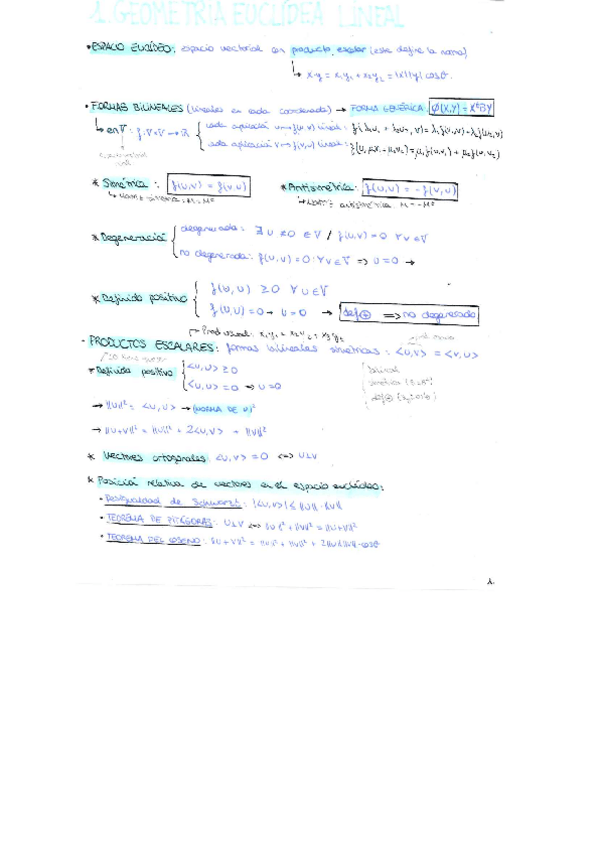 1. GEOMETRÍA EUCLÍDEA LINEAL
• ESPACIO EUCLÍDEO: espacio vectorial con producto escalar (este define la norma)
↳ x·y = x₁y₁ + x₂y₂ = |x||y| cosθ.
• FORMAS BILINEALES (lineales en cada coordenada) → FORMA GENÉRICA: φ(X,Y) = XᵗBY
↳ en V: f: V×V → ℝ { cada aplicación u→f(u,v) lineal: f(λ₁u₁ + λ₂u₂, v) = λ₁f(u₁,v) + λ₂f(u₂,v)
cada aplicación v→f(u,v) lineal: f(u, μ₁v₁ + μ₂v₂) = μ₁f(u,v₁) + μ₂f(u,v₂)
* Simétrica: f(u,v) = f(v,u) * Antisimétrica: f(u,v) = -f(v,u)
* Degeneración { degenerada: ∃ u ≠ 0 ∈ V / f(u,v) = 0 ∀v ∈ V
no degenerada: f(u,v) = 0 ∀v ∈ V => u = 0 →
* Definida positiva { f(u,u) ≥ 0 ∀u ∈ V
f(u,u) = 0 → u = 0 → def ⊕ => no degenerada
Prod usual: x₁y₁ + x₂y₂ + x₃y₃
• PRODUCTOS ESCALARES: formas bilineales simétricas: <u,v> = <v,u>
* Definida positiva { <u,u> ≥ 0
<u,u> = 0 => u = 0
bilineal
→ ||u||² = <u,u> → (NORMA DE u)²
→ ||u+v||² = ||u||² + 2<u,v> + ||v||²
* Vectores ortogonales: <u,v> = 0 <=> u⊥v
* Posición relativa de vectores en el espacio euclídeo:
• Desigualdad de Schwarz: |<u,v>| ≤ ||u||·||v||
• TEOREMA DE PITÁGORAS: u⊥v <=> ||u||² + ||v||² = ||u+v||²
• TEOREMA DEL COSENO: ||u+v||² = ||u||² + ||v||² + 2||u||||v||·cosθ
1.